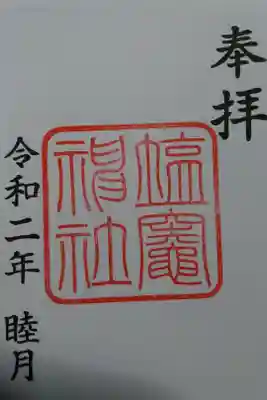 奉拝
塩竈
神社
令和二年 睦月